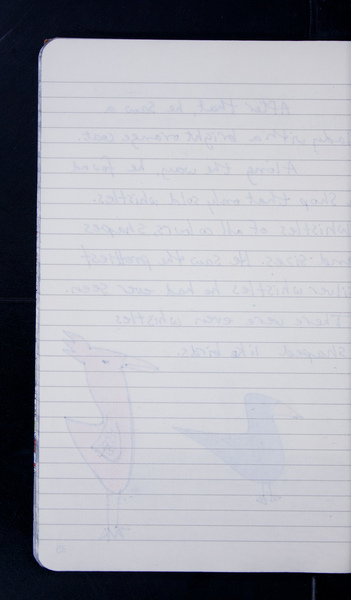 After that, he saw a
lady with a bright orange coat.
Along the way, he found
a shop that only sold whistles.
Whistles of all colours, shapes
and sizes. He saw the prettiest
silver whistles he had ever seen.
There were even whistles
shaped like birds.